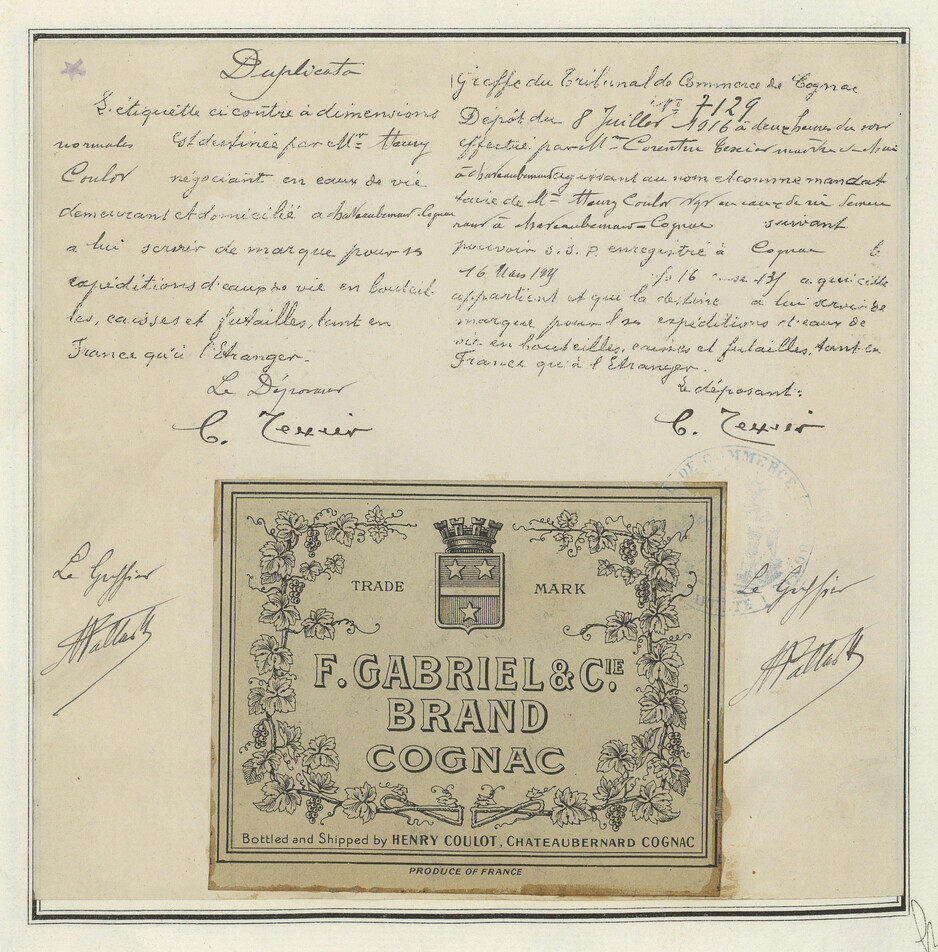 Duplicata
L'étiquette ci contre à dimensions
normales est destinée par Mr Henry
Coulot négociant en eaux de vie
demeurant et domicilié a chateaubernard-Cognac
a lui servir de marque pour ses
expéditions d'eaux de vie en bouteil-
les, caisses et futailles, tant en
France qu'à l'Etranger.
Le Déposant
C. Texier
Greffe du Tribunal de Commerce de Cognac
No 7129
Dépôt du 8 Juillet 1916 à deux heures du soir
effectué par Mme Corentin Texier
à chateaubernard agissant au nom et comme mandat
taire de Mr Henry Coulot Ngt en eaux de vie demeu
rant à chateaubernard-Cognac suivant
pouvoir S.S.P. enregistré à Cognac le
16 Mars fo 16 case 137 a qui elle
appartient et que la destine a lui servir de
marque pour ses expéditions d'eaux de
vie en bouteilles, caisses et futailles, tant en
France qu'à l'Etranger.
Le déposant:
C. Texier
DE COMMERCE
Le Greffier
Le Greffier
TRADE MARK
F. GABRIEL & CIE
BRAND
COGNAC
Bottled and Shipped by HENRY COULOT, CHATEAUBERNARD COGNAC
PRODUCE OF FRANCE